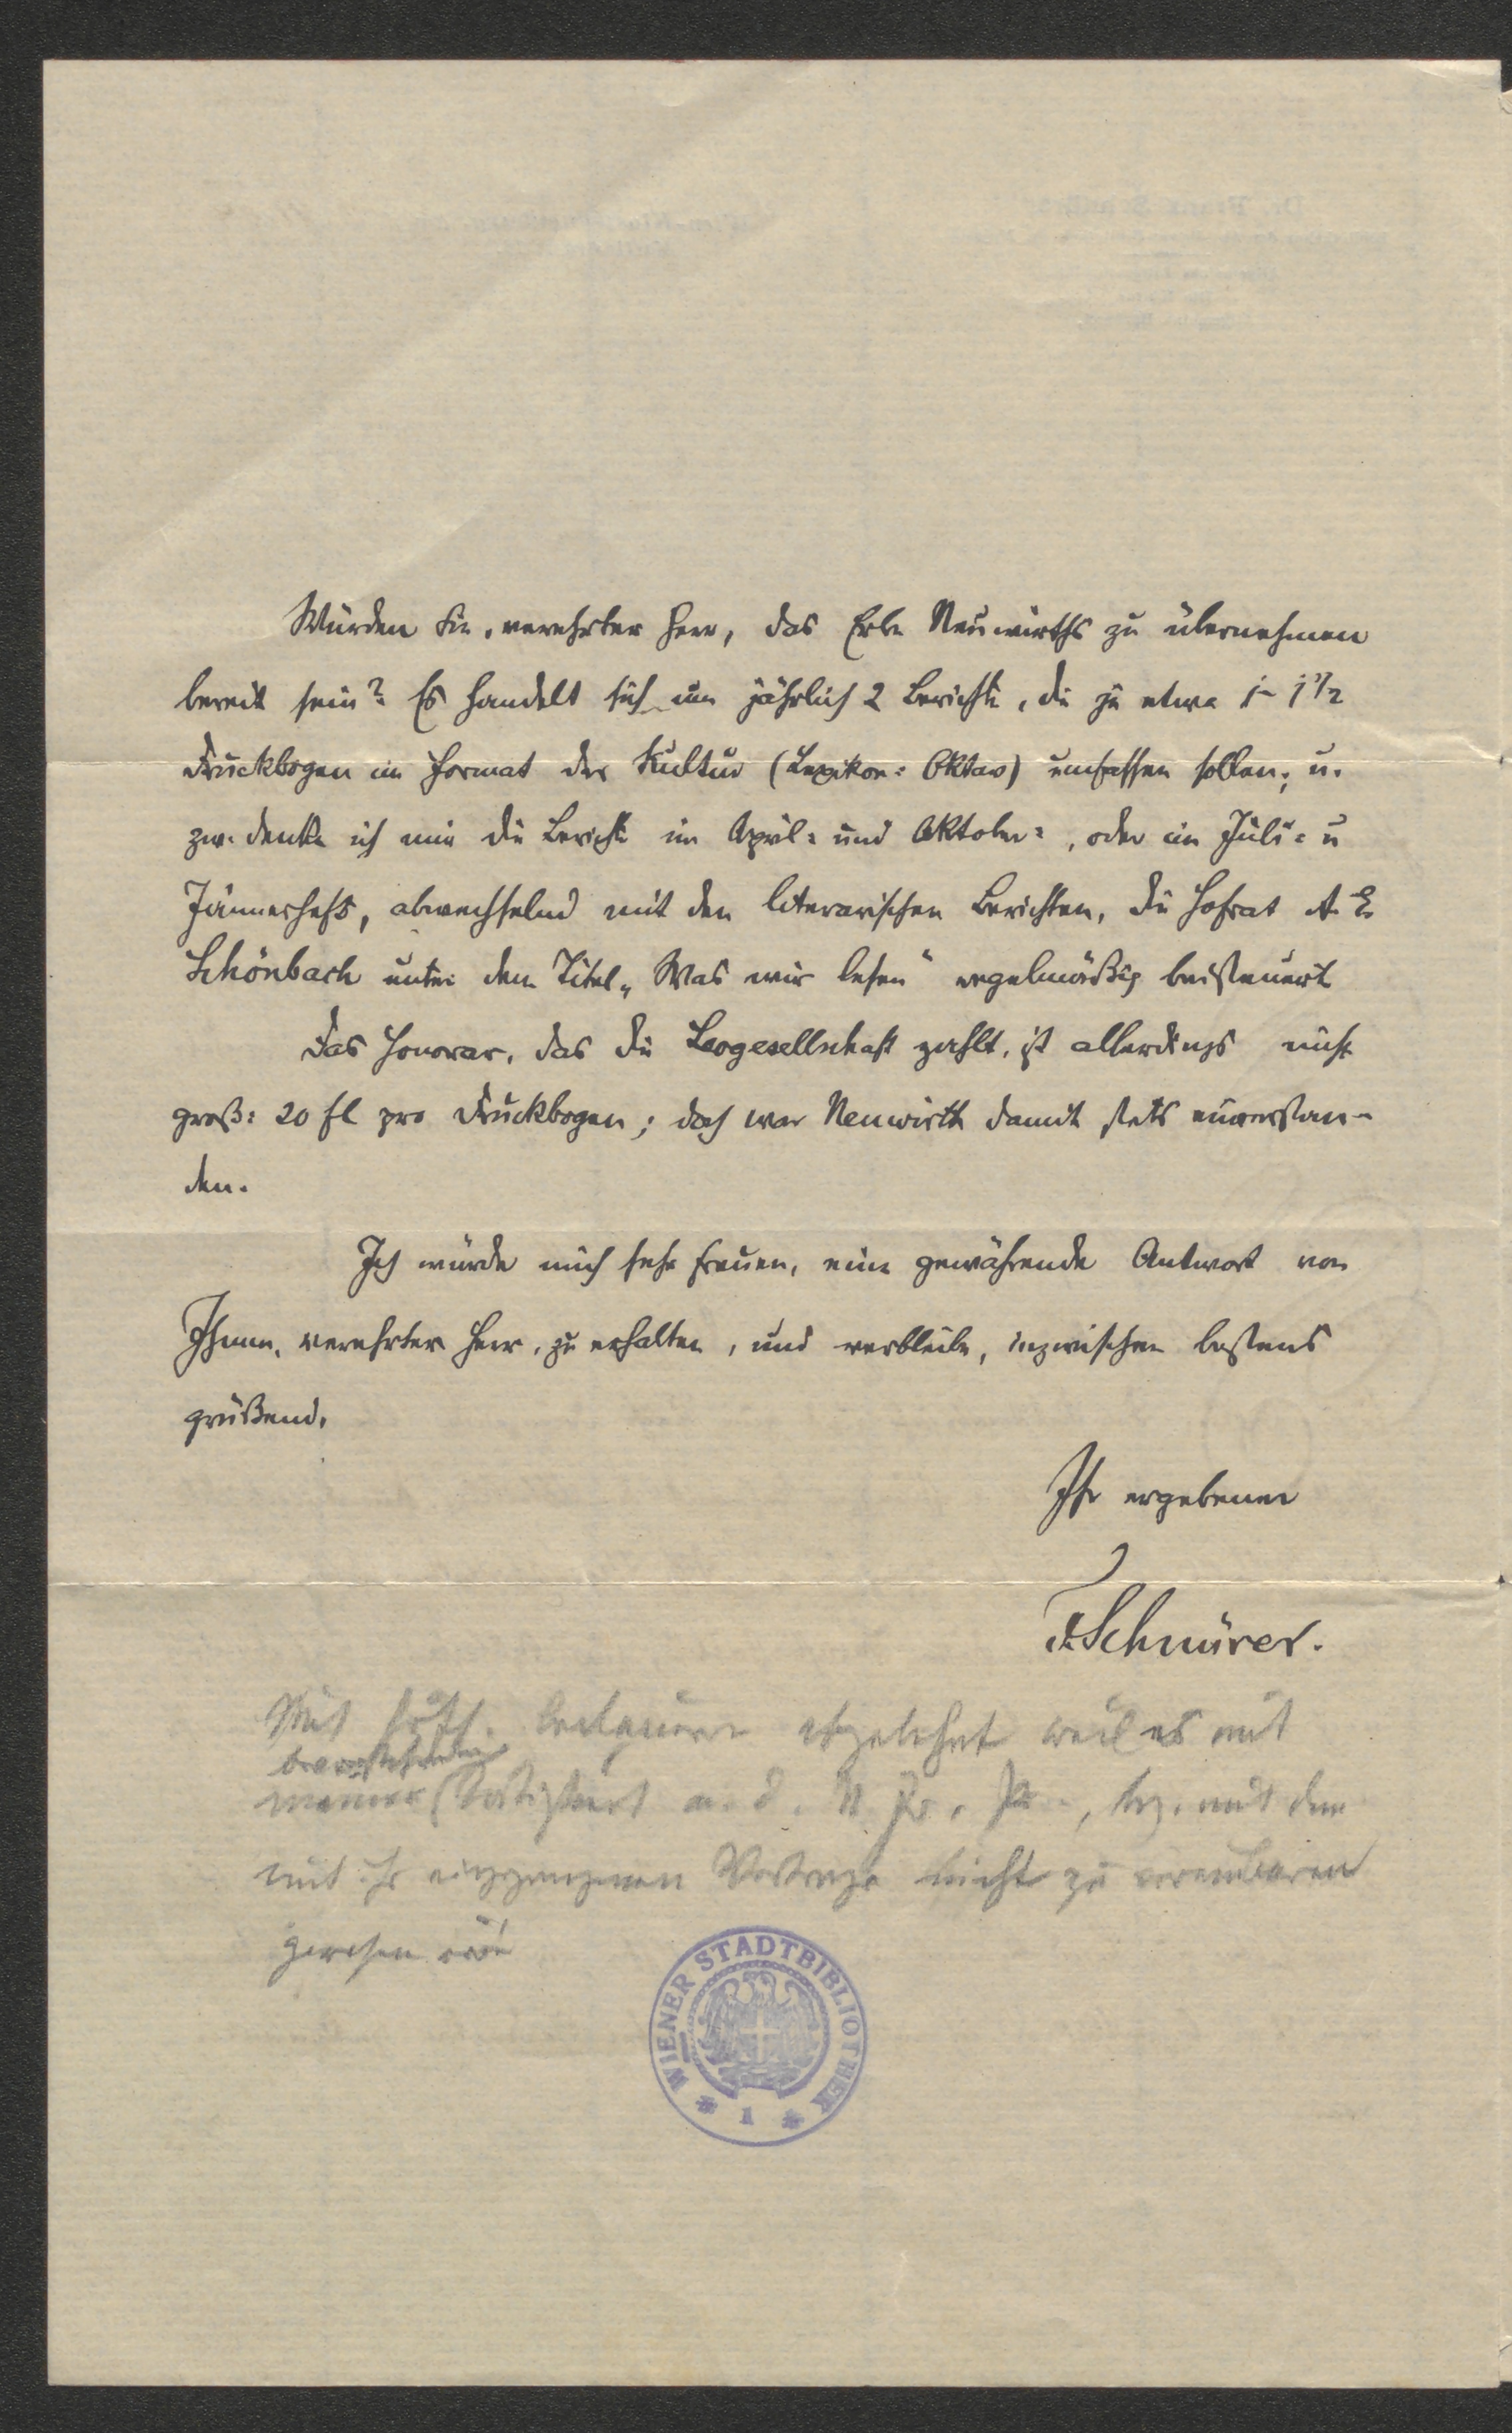 Würden Sie, verehrter Herr, das Erbe Neuwirths zu übernehmen
bereit sein? Es handelt sich um jährlich 2 Berichte, die je etwa 1–1 1/2
Druckbogen im Format der Kultur (Lexikon= Oktav) umfassen sollen; u.
zw. denke ich mir die Berichte im April= und Oktober=, oder im Juli= u
Jännerheft, abwechselnd mit den literarischen Berichten, die Hofrat A. E.
Schönbach unter dem Titel „Was wir lesen" regelmäßig beisteuert
Das Honorar, das die Leogesellschaft zahlt, ist allerdings nicht
groß: 20 fl pro Druckbogen; doch war Neuwirth damit stets einverstan-
den.
Ich würde mich sehr freuen, eine gewährende Antwort von
Ihnen, verehrter Herr, zu erhalten, und verbleibe, inzwischen bestens
grüßend,
Ihr ergebener
F. Schnürer.
Mit höfl. Bedauern abgelehnt weil es mit
bevorstehenden
meiner Tätigkeit a. d. N. Fr. Pr., bez. mit dem
mit ihr eingegangenen Vertrage nicht zu vereinbaren
gewesen wäre
WIENER STADTBIBLIOTHEK
* 1 *